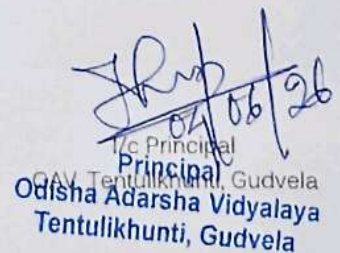 04/06/26
I/c Principal
OAV, Tentulikhunti, Gudvela
Principal
Odisha Adarsha Vidyalaya
Tentulikhunti, Gudvela